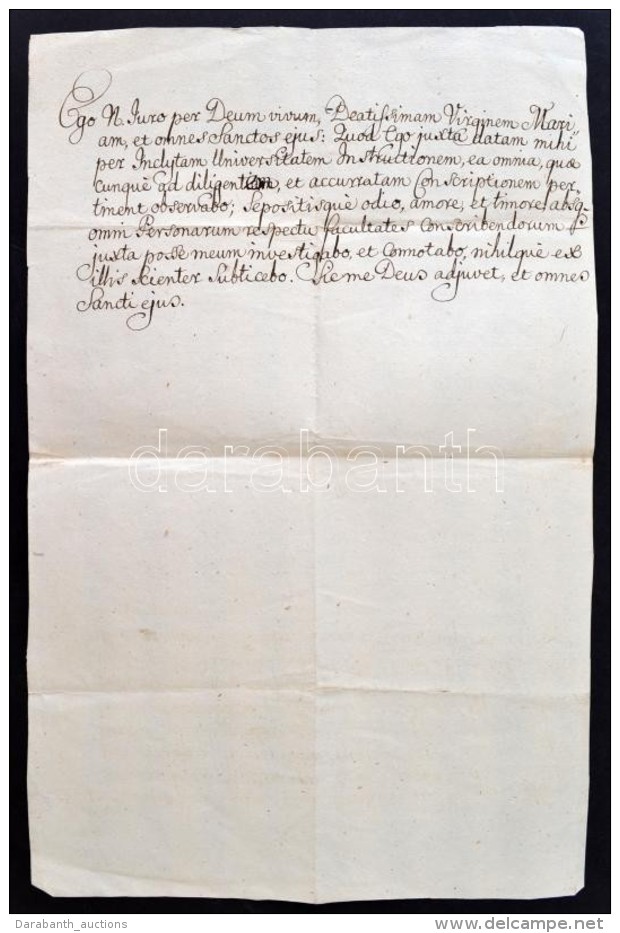 Ego N. Juro per Deum vivum, Beatissimam Virginem Mari
am, et omnes Sanctos ejus: Quod Ego juxta datam mihi
per Inclytam Universitatem Instructionem, ea omnia, quæ
cunque ad diligentem, et accurratam Conscriptionem per,
tinent observabo; sepositisque odio, amore, et timore, absq.
omni Personarum respectu facultates Conscribendorum
juxta posse meum investigabo, et Connotabo, nihilque ex
illis scienter Subticebo. Sic me Deus adjuvet, et omnes
Sancti ejus.
darabanth
Darabanth_auctions
www.delcampe.net